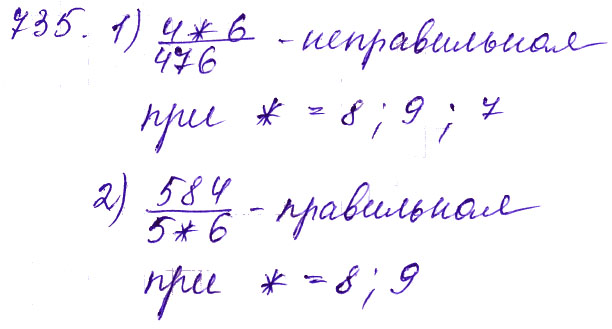 735. 1) 4*6/476 - неправильная
при * = 8; 9; 7
2) 584/5*6 - правильная
при * = 8; 9